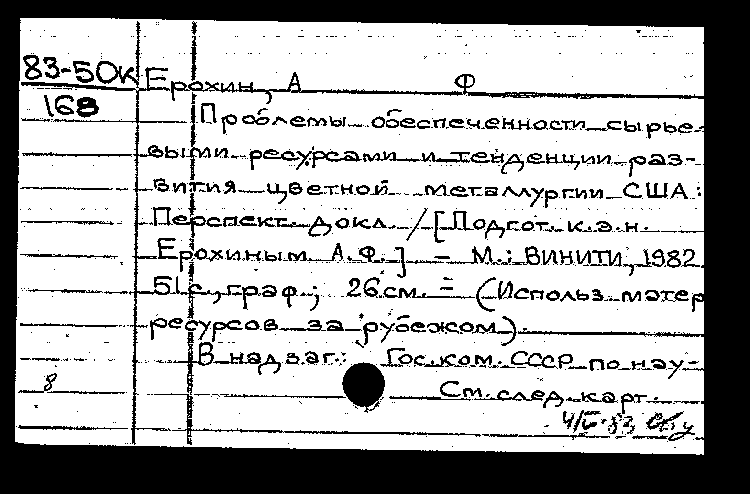 83-50к Ерохин, А Ф
168
Проблемы обеспеченности сырье-
выми ресурсами и тенденции раз-
вития цветной металлургии США:
Перспект. докл. / [Подгот. к.э.н.
Ерохиным А.Ф.] - М.: ВИНИТИ, 1982
51 с., граф.; 26 см. - (Использ. матер
ресурсов за рубежом).
В надзаг.: Гос. ком. СССР по нау-
8 См. след. карт.